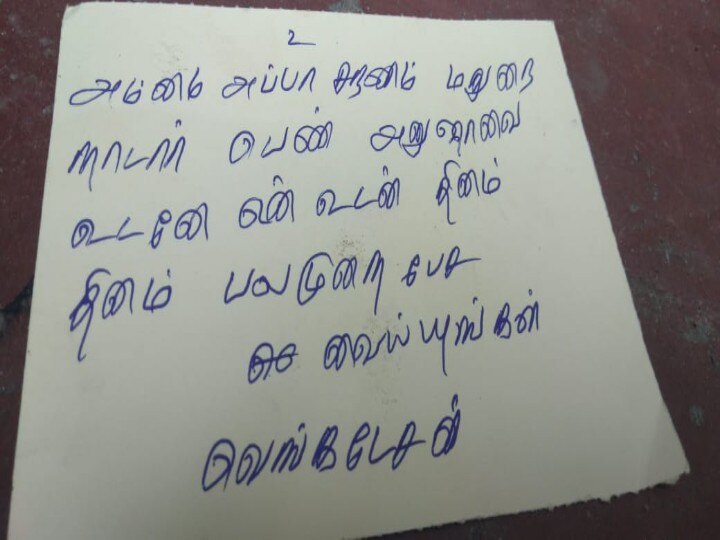 உ
அம்மை அப்பா சரணம் மதுரை
நாடார் பெண் அனுஜாவை
உடனே என் உடன் தினம்
தினம் பலமுறை பேச
வைய்யுங்கள்
வெங்கடேசன்